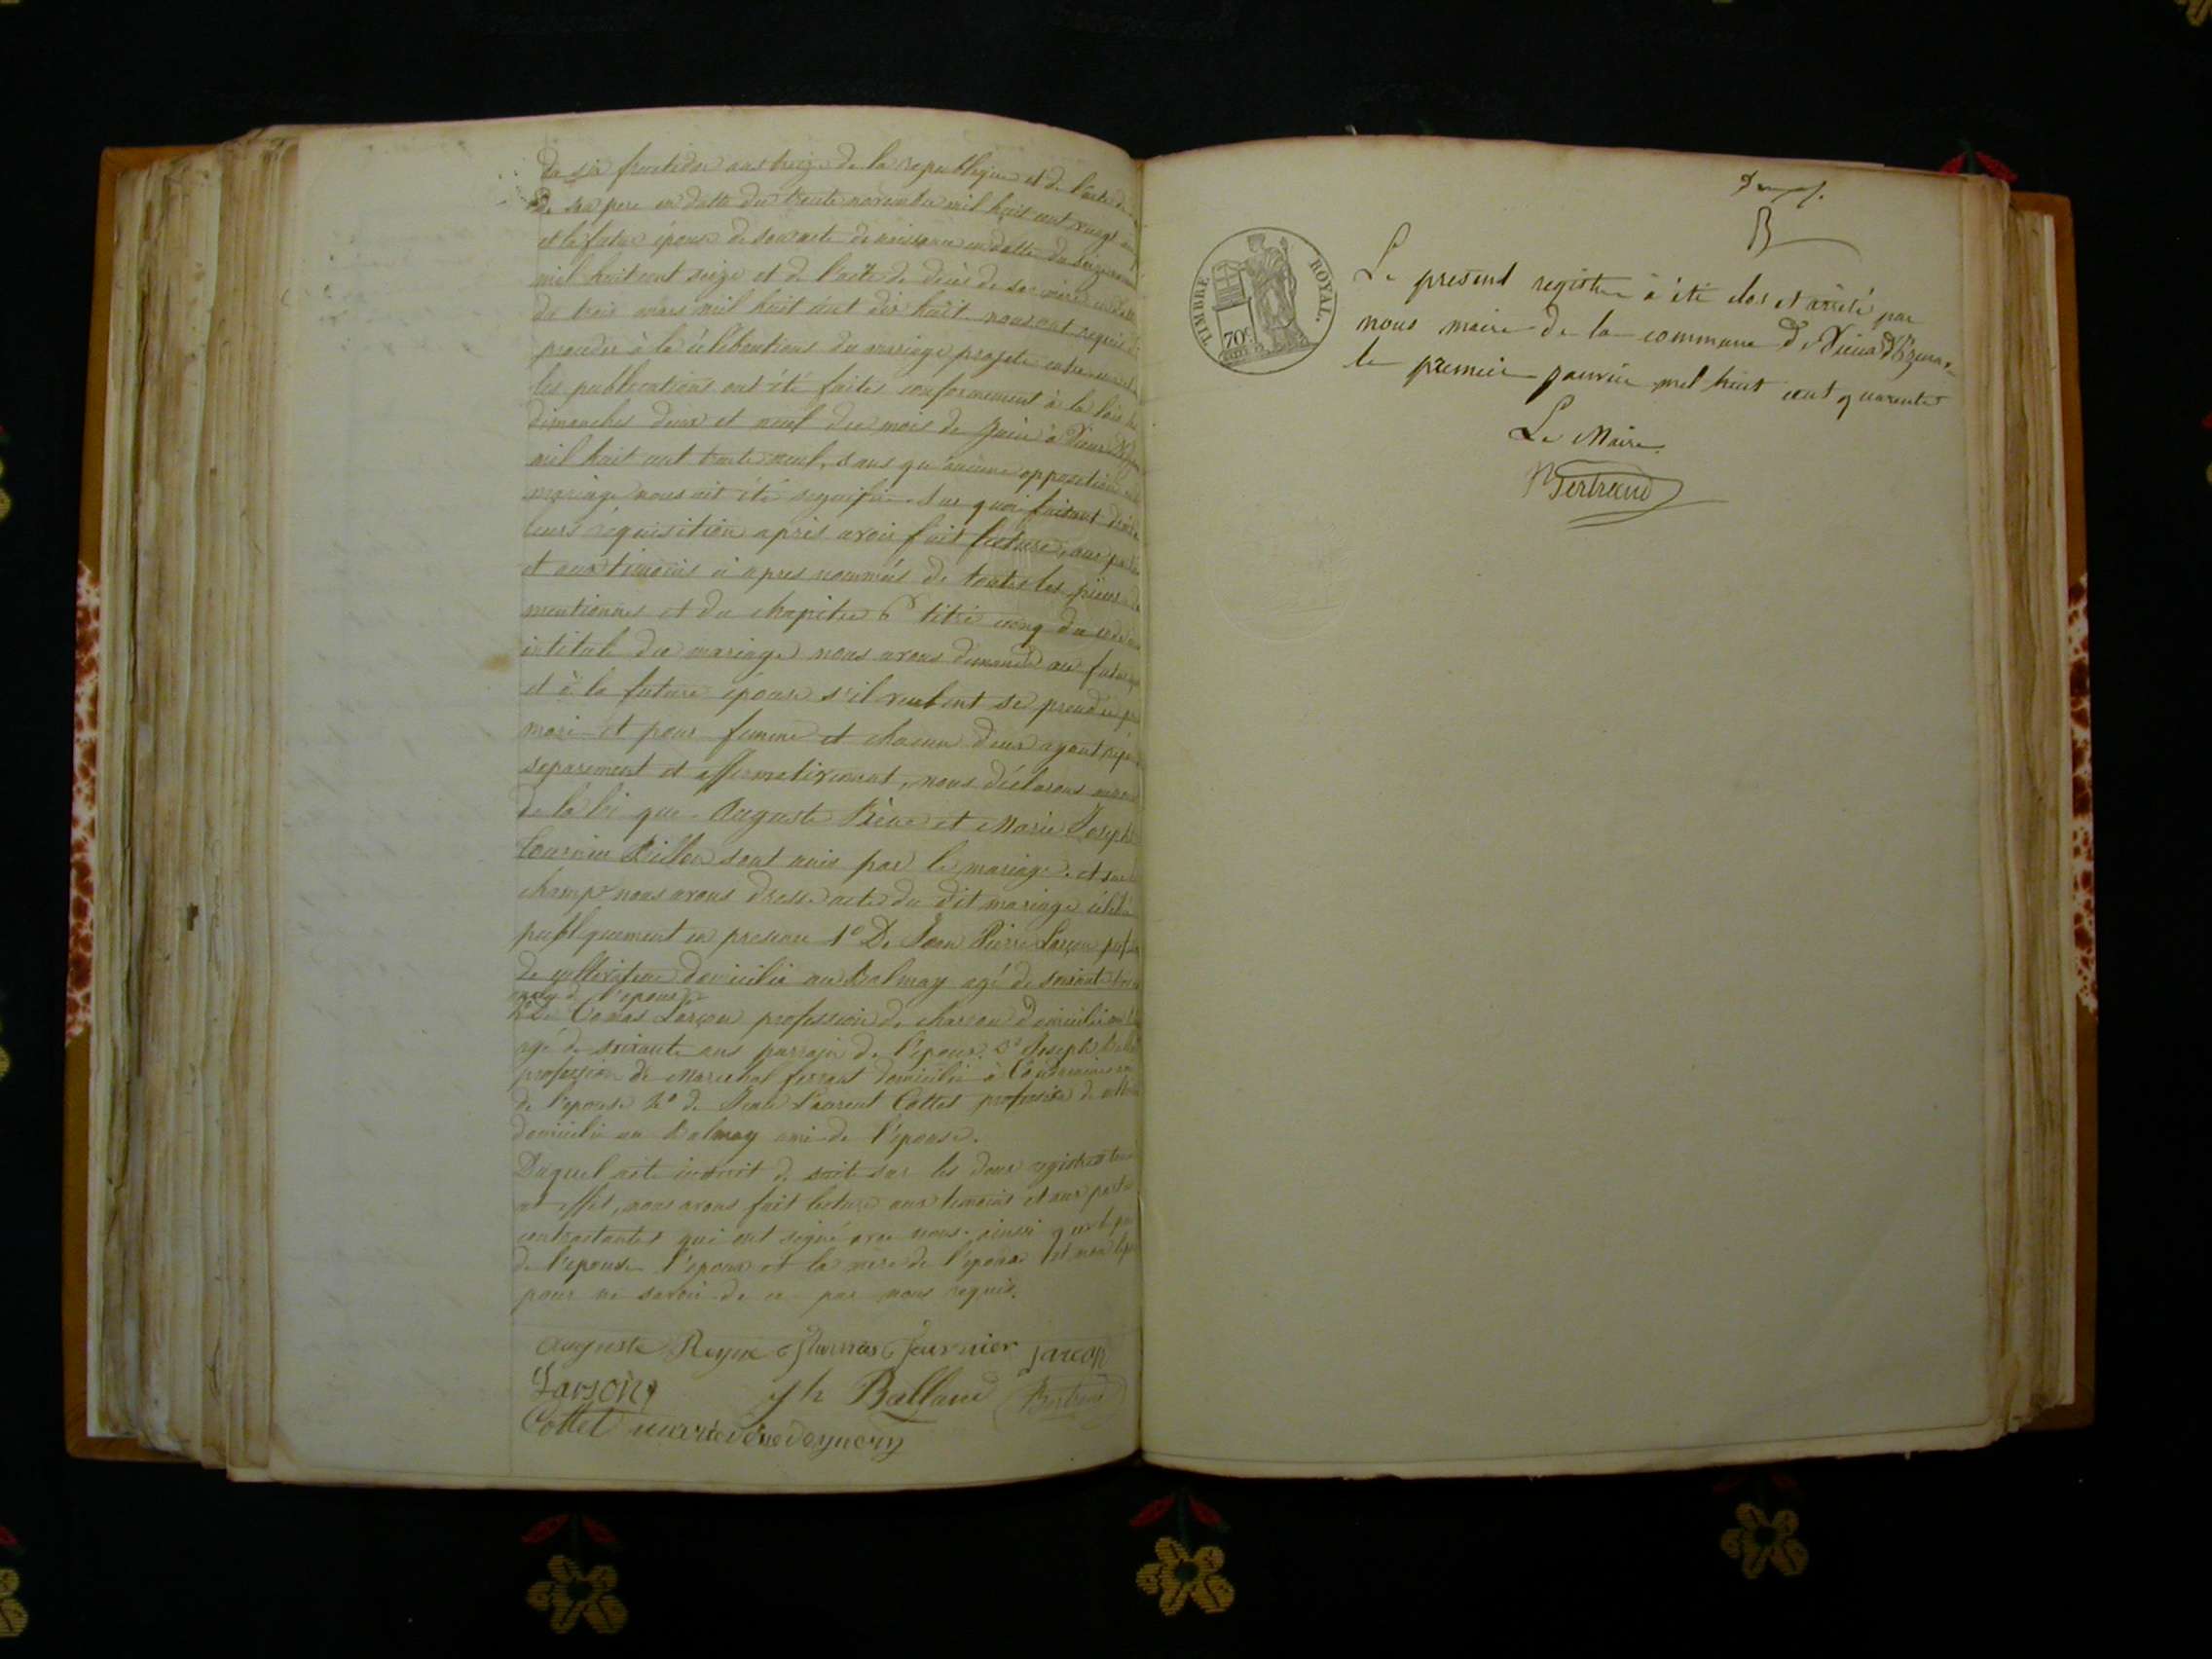 du six fructidor ans treize de la republique et de l'acte de
de son pere en datte du trente novembre mil huit cent vingt
et la future épouse de son acte de naissance en datte du seize
mil huit cent seize et de l'acte de deces de sa mere en datte
du trois mars mil huit cent dix huit nous ont requis de
proceder à la célébrations du mariage projeté entre eux et
les publications ont été faites conformement à la lois les
dimanches deux et neuf du mois de juin à Vieux D'Izenave
mil huit cent trente neuf, sans qu'aucune opposition au
mariage nous ait été signifiée. Sur quoi faisant droit à
leurs réquisition apres avoir fait lecture, aux parties
et aux timoins ci apres nommés de toutes les pièces
mentionnes et du chapitre 6 titre cinq du code
intitulé du mariage nous avons demandé au futur
et à la future épouse s'il veulent se prendre pour
mari et pour femme et chacun d'eux ayant repondu
separement et affirmativement, nous déclarons au nom
de la loi que Auguste Rêne et Marie Joseph
Fournier Billon sont unis par le mariage. et sur le
champ nous avons dressé acte du dit mariage célébré
publiquement en presence 1° De Jean Pierre Larçon profession
de cultivateur domicilié au Balmay agé de soixante
de l'epoux
2° De Comas Larçon profession de charron domicilié au
agé de soixante ans parrain de l'époux. 3° Joseph Balland
profession de marechal ferrant domicilié à
de l'epouse 4° de Jean Laurent Cottet profession de
domicilié au Balmay ami de l'épouse.
Duquel acte inscrit de suite sur les deux registres
cet effet, nous avons fait lecture aux temoins et aux parties
contractantes qui ont signé avec nous. ainsi que le pere
de l'epouse l'epoux et la mère de l'époux et non l'épouse
pour ne savoir de ce par nous requis.
Auguste Reyne Thomas Fournier Jarcon
Larson Jh Balland Bertrand
Cottet
TIMBRE ROYAL.
70c
B
Le present registre à été clos et arrêté par
nous maire de la commune de Vieux d'Izenave
le premier janvier mil huit cent quarente
Le Maire
Bertrand